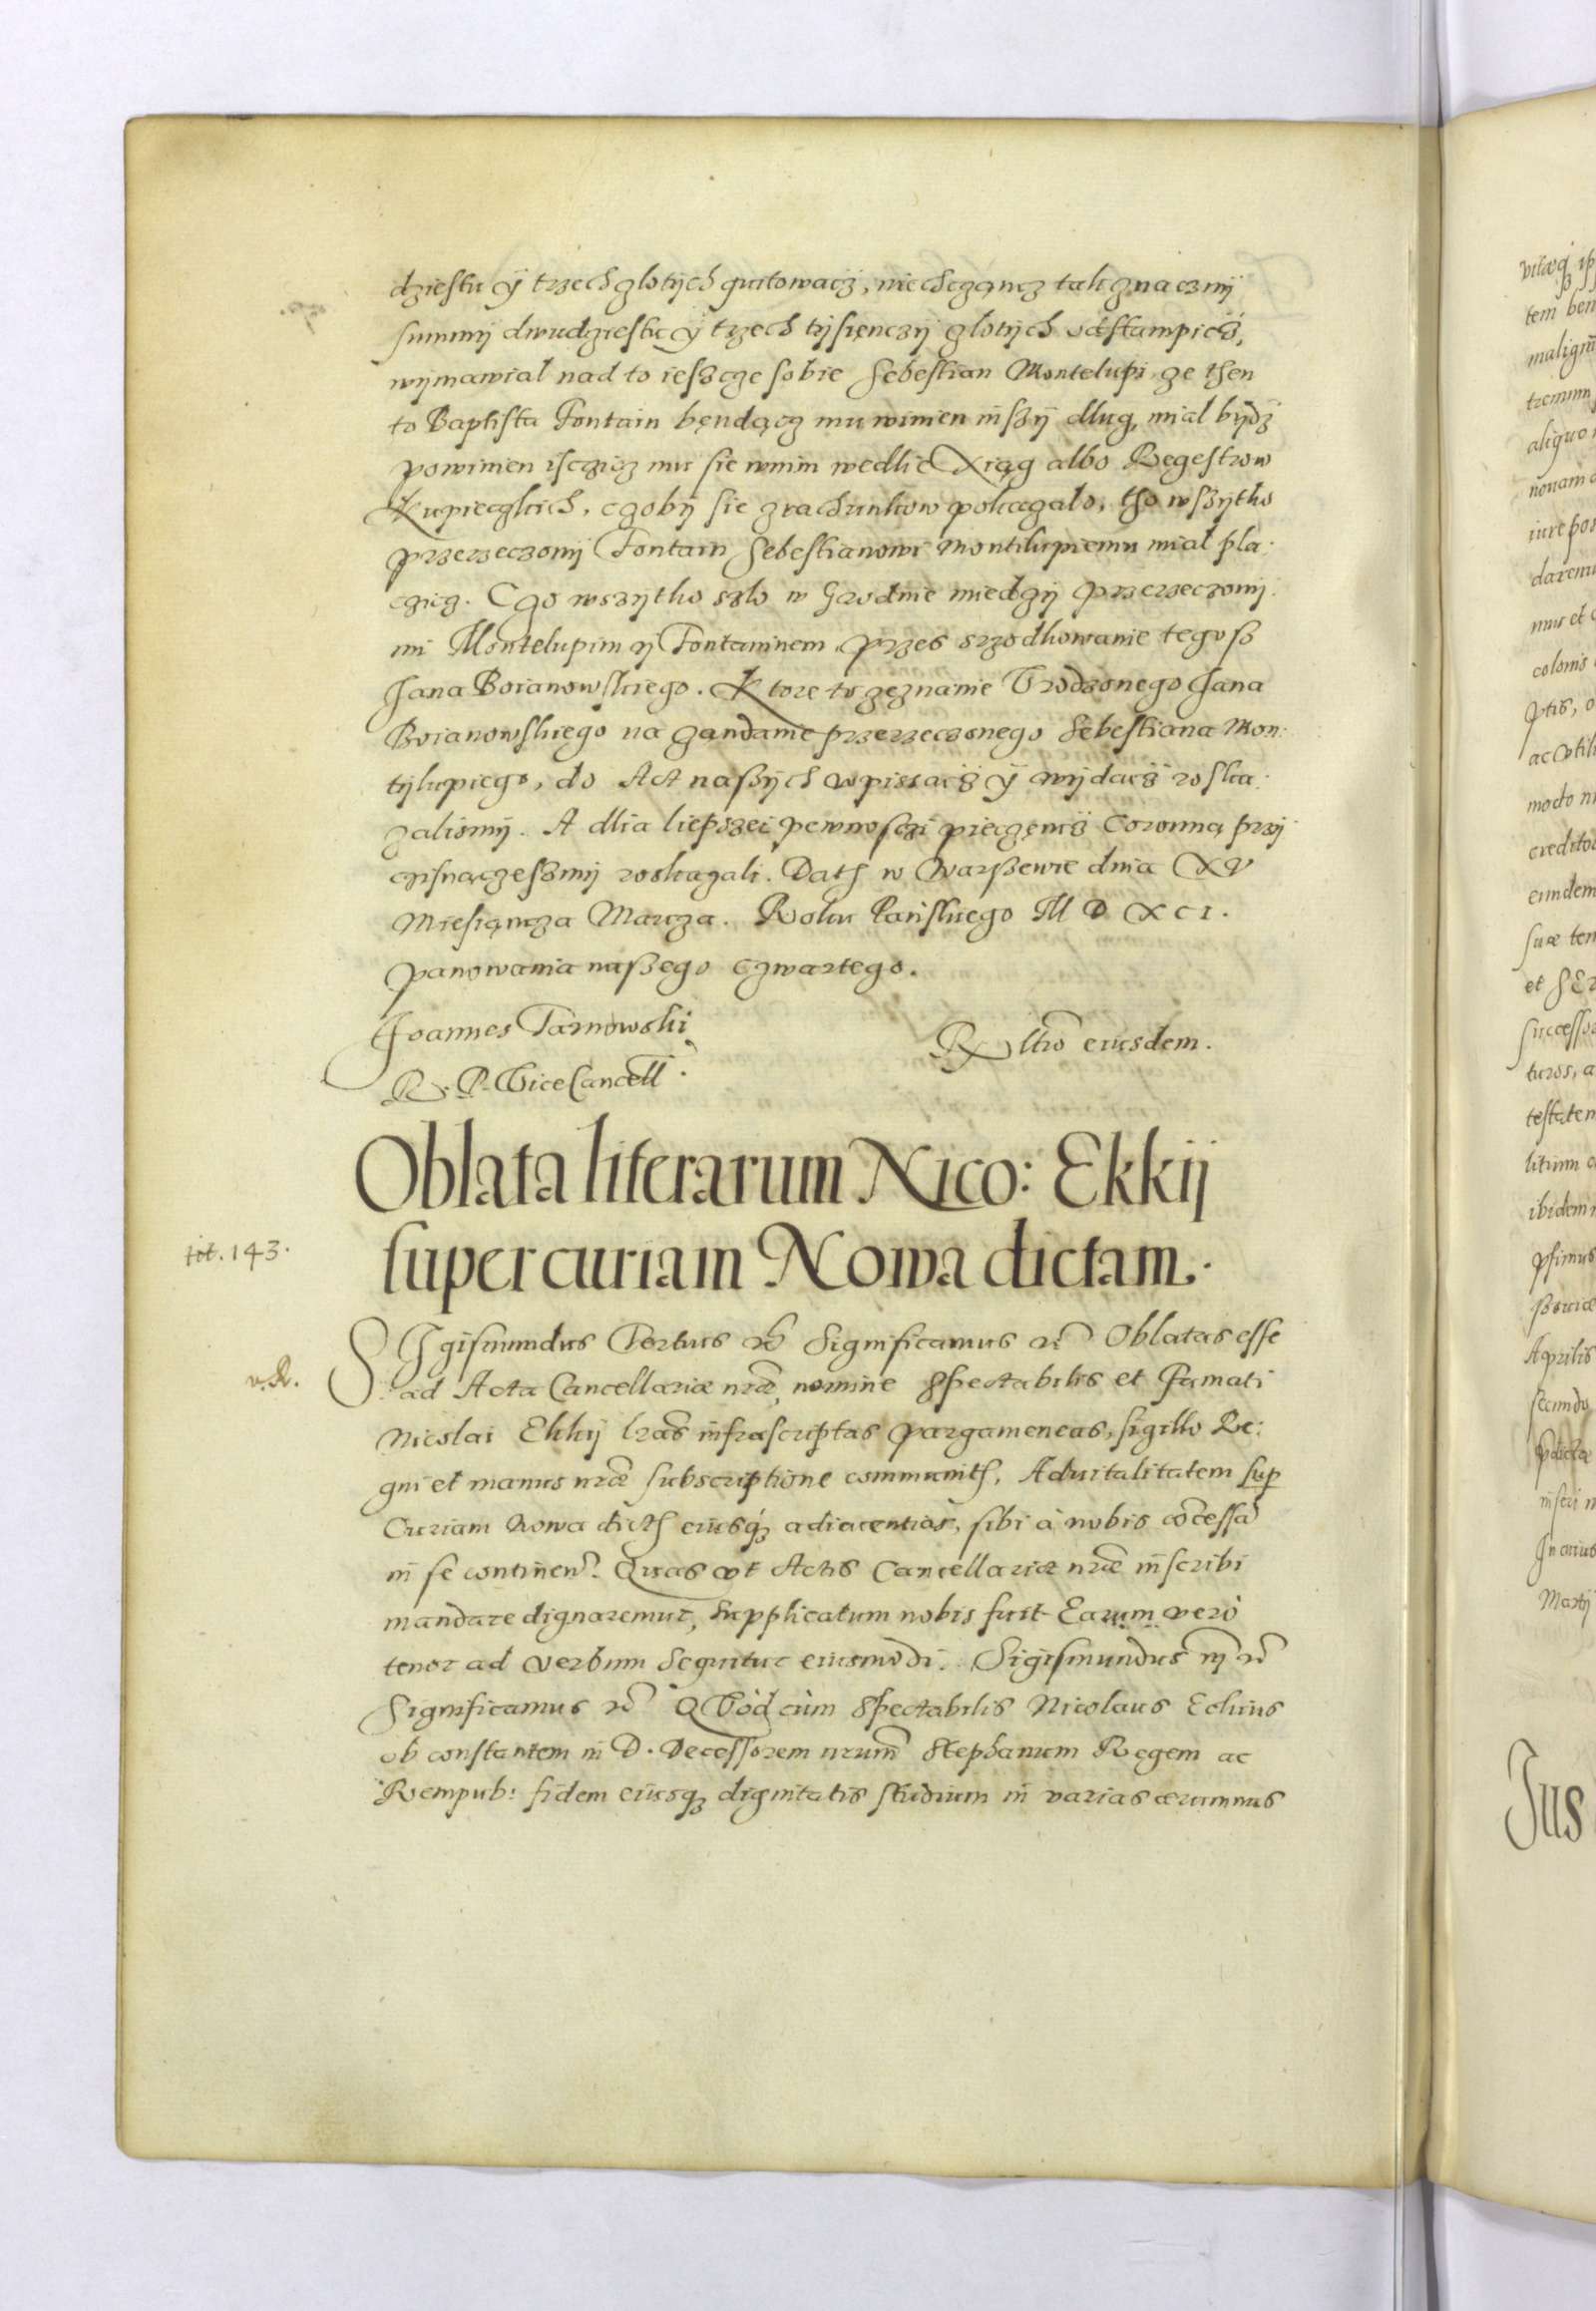 dziestu ÿ trzech zlotÿch quitowacz, niechcząncz tak znacznÿ
summÿ dwudziestu ÿ trzech tÿsięnczÿ zlotÿch odstampicz,
wÿmawial nad to ieszcze sobie Sebestian Montelupi, ze then
to Baptista Fontain będącz mu winien inszÿ dlug, mial bÿdz
powinien isczicz mu sie wnim wedlie Xiąg albo Regestrow
Kupieczkich, czobÿ sie zrachunkow pokazalo, tho wszÿtko
przerzeczonÿ Fontain Sebestianowi Montilupiemu mial pla-
czicz. Czo wszÿtko szlo w Grodnie miedzÿ przerzeczonÿ-
mi Montelupim ÿ Fontaninem przes srzodkowanie tegosz
Jana Boianowskiego. Ktore to zeznanie Urodzonego Jana
Boianowskiego na ządanie przerzeczonego Sebestiana Mon-
tÿlupiego, do Act naszÿch wpissacz ÿ wÿdacz roska-
zalismÿ. A dlia liepszei pewnosczi pieczęncz Coronną przÿ
czisnączesmÿ roskazali. Dath w Warszewie dnia XV
Miesiąncza Marcza. Roku Pańskiego M D XCI.
Panowania naszego czwartego.
Joannes Tarnowski
R. P. Vice Cancell.
Rltio eiusdem.
Oblata literarum Nico: Ekkij
super curiam Nowa dictam.
tit. 143.
Sigismundus Tertius etc Significamus etc Oblatas esse
v. R.
ad Acta Cancellariæ nræ, nomine Spectabilis et Famati
Nicolai Ekkij lras infrascriptas pargameneas, sigillo Re-
gni et manus nræ subscriptione communith, Advitalitatem sup
Curiam Nowa dicth eiusq; adiacentias, sibi à nobis cocessa
in se continen. Quas vt Actis Cancellariæ nræ inscribi
mandare dignaremur, Supplicatum nobis fuit Earum verò
tenor ad verbum sequitur eiusmodi. Sigismundus iij etc
Significamus etc Qvòd cùm Spectabilis Nicolaus Eckius
ob constantem in D. Decessorem nrum Stephanum Regem ac
Rempub: fidem eiusq; dignitatis studium in varias ærumnas